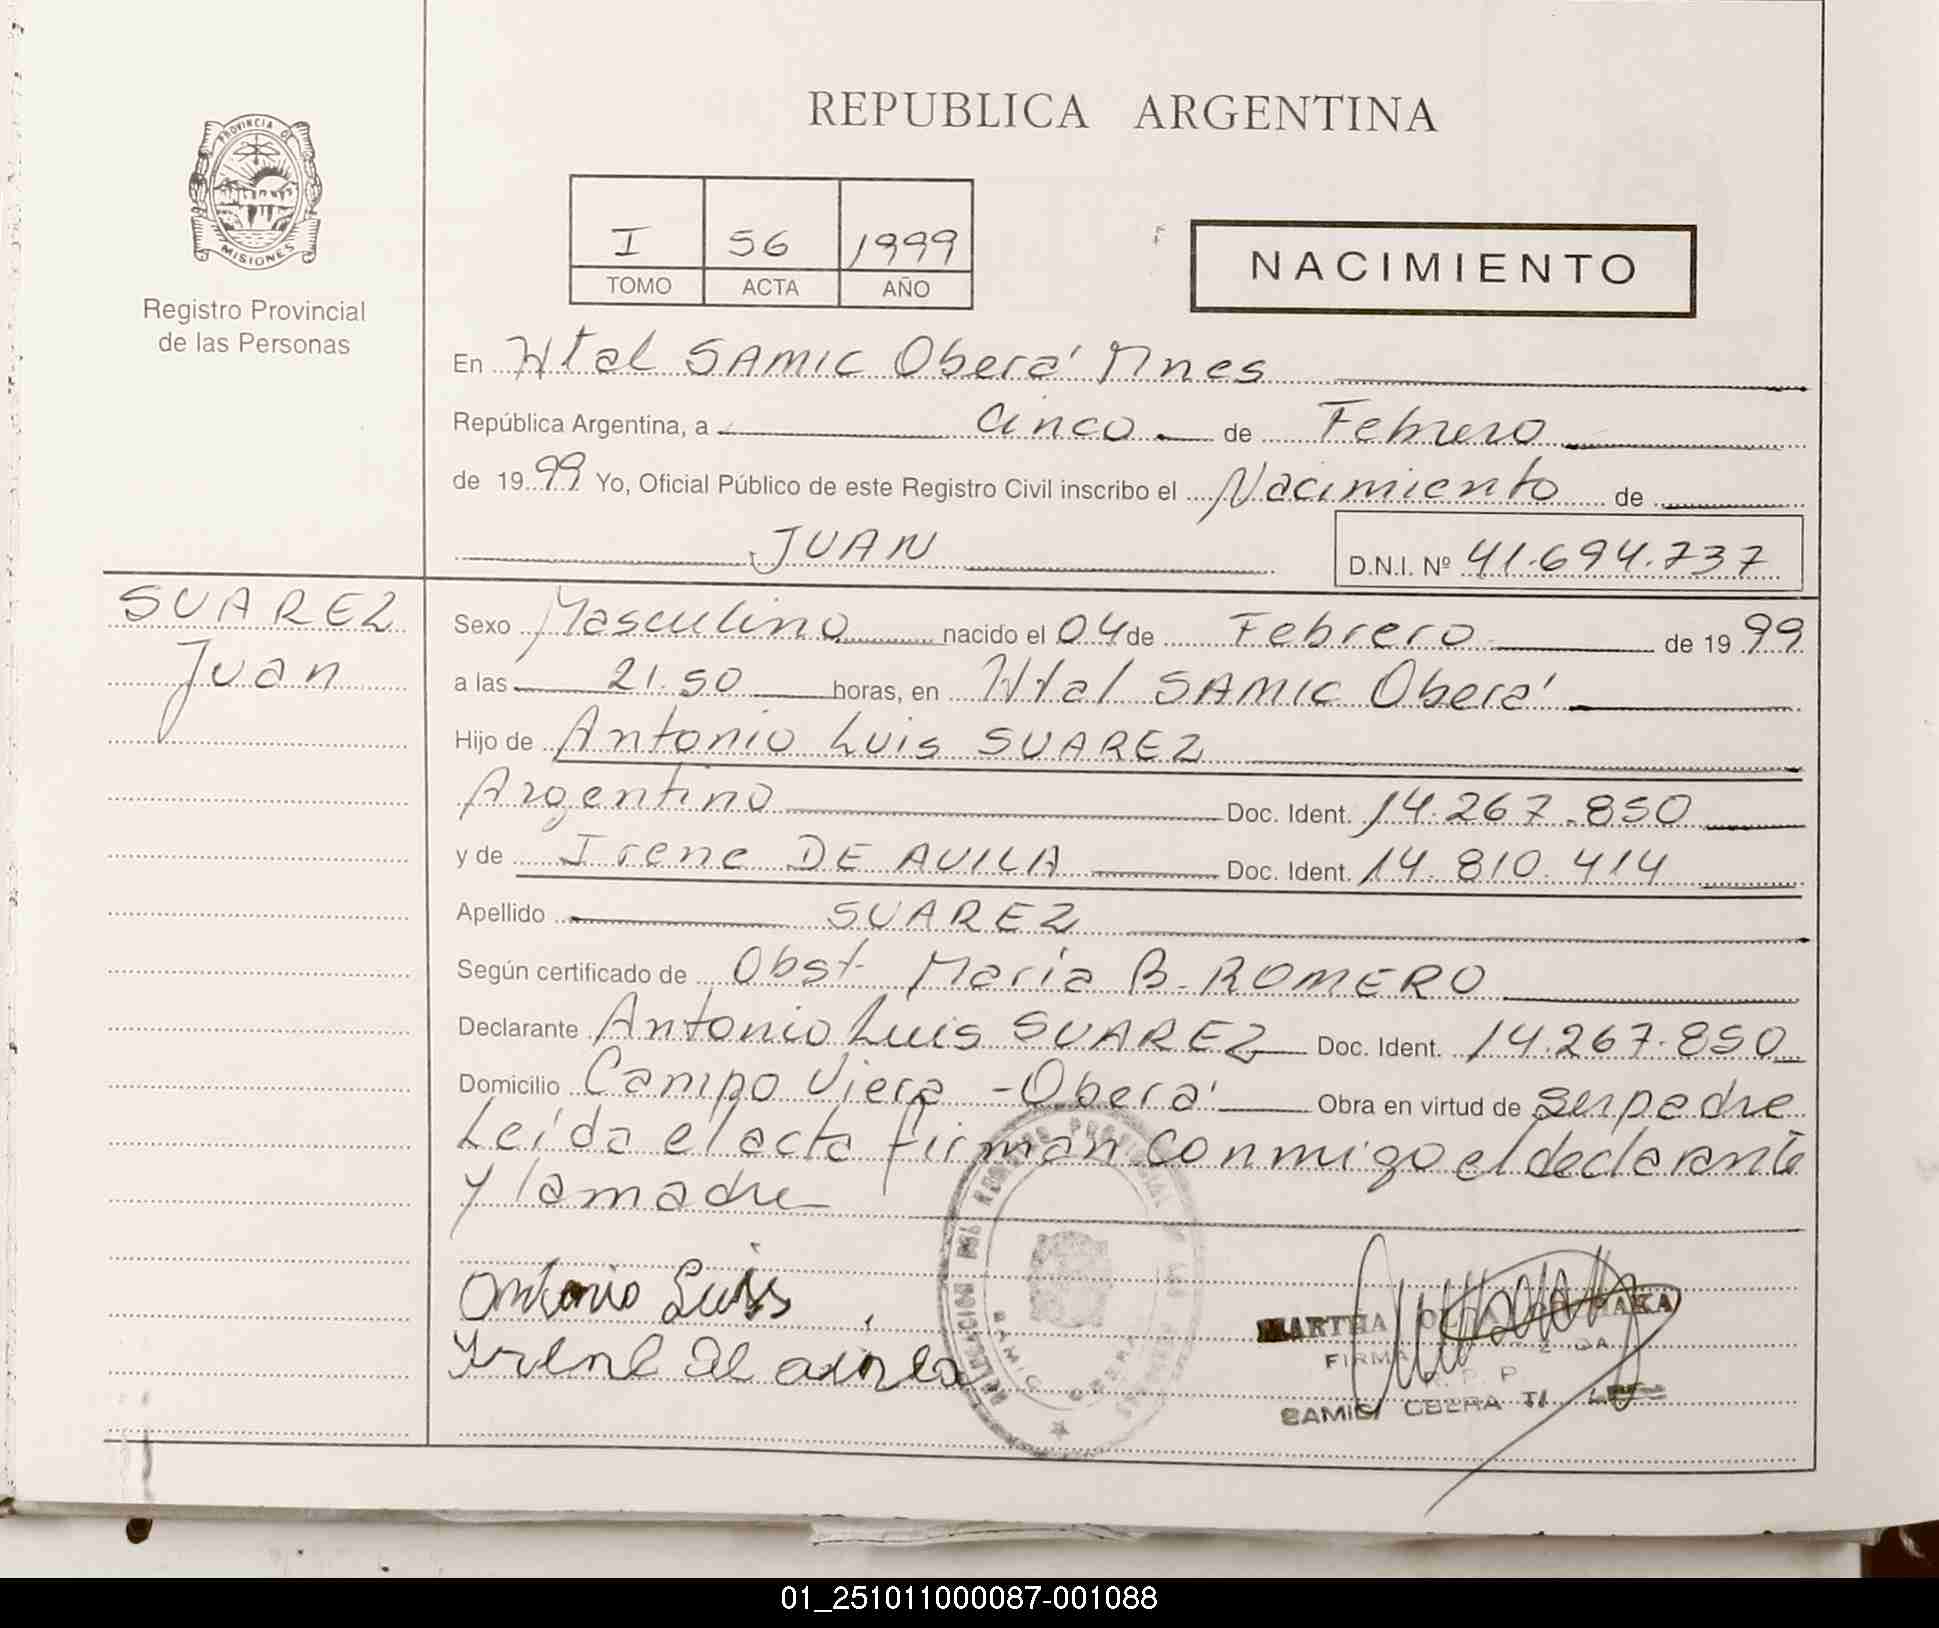 REPUBLICA ARGENTINA
PROVINCIA DE
MISIONES
Registro Provincial
de las Personas
I 56 1999
TOMO ACTA AÑO
NACIMIENTO
En Htal SAMIC Oberá Mnes
República Argentina, a Cinco de Febrero
de 1999 Yo, Oficial Público de este Registro Civil inscribo el Nacimiento de
JUAN D.N.I. Nº 41.694.737
SUAREZ
Juan
Sexo Masculino nacido el 04 de Febrero de 1999
a las 21.50 horas, en Htal SAMIC Oberá
Hijo de Antonio Luis SUAREZ
Argentino Doc. Ident. 14.267.850
y de Irene DE AVILA Doc. Ident. 14.810.414
Apellido SUAREZ
Según certificado de Obst María B. ROMERO
Declarante Antonio Luis SUAREZ Doc. Ident. 14.267.850
Domicilio Campo Viera - Oberá Obra en virtud de ser padre
Leída el acta firman conmigo el declarante
y la madre
Antonio Luis
Irene de avila
DELEGACION DEL REGISTRO PROVINCIAL DE LAS
SAMIC OBERA
MARTHA
FIRMA
SAMIC OBERA
01_251011000087-001088